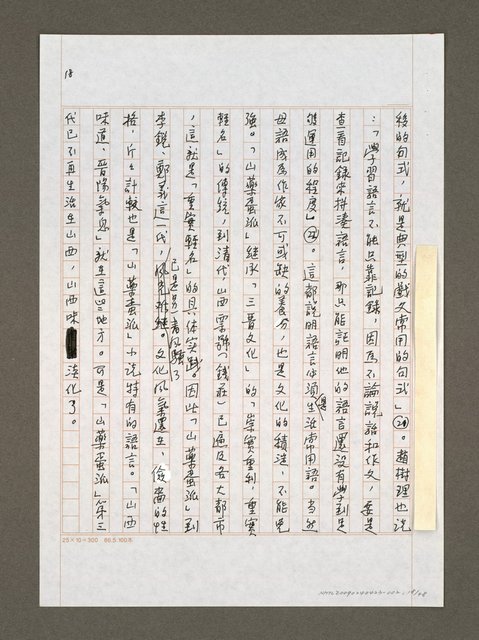 18
後的句式，就是典型的戲文常用的句式」㉔。趙樹理也說
：「學習語言不能只靠記錄，因為不論說話和作文，要是
查看記錄來拼湊語言，那只能証明他的語言還沒有學到足
够運用的程度」㉕。這都說明語言必須是生活常用語。當然
母語成為作家不可或缺的養分，也是文化的積澱，不能免
強。「山藥蛋派」繼承「三晉文化」的「崇實重利、重實
輕名」的傳統，到清代山西票號（錢莊）已遍及各大都市
，這就是「重實輕名」的具體實踐。因此「山藥蛋派」到
李銳、鄭義這一代，已是另一番風貌了。文化風氣還在，儉嗇的性
格，斤斤計較也是「山藥蛋派」小說特有的語言。「山西
味道、晉陽氣息」就在這些地方。可是「山藥蛋派」第三
代已不再生活在山西，山西味淡化了。
25×10=300
NMTL20090240423-002, 18/48